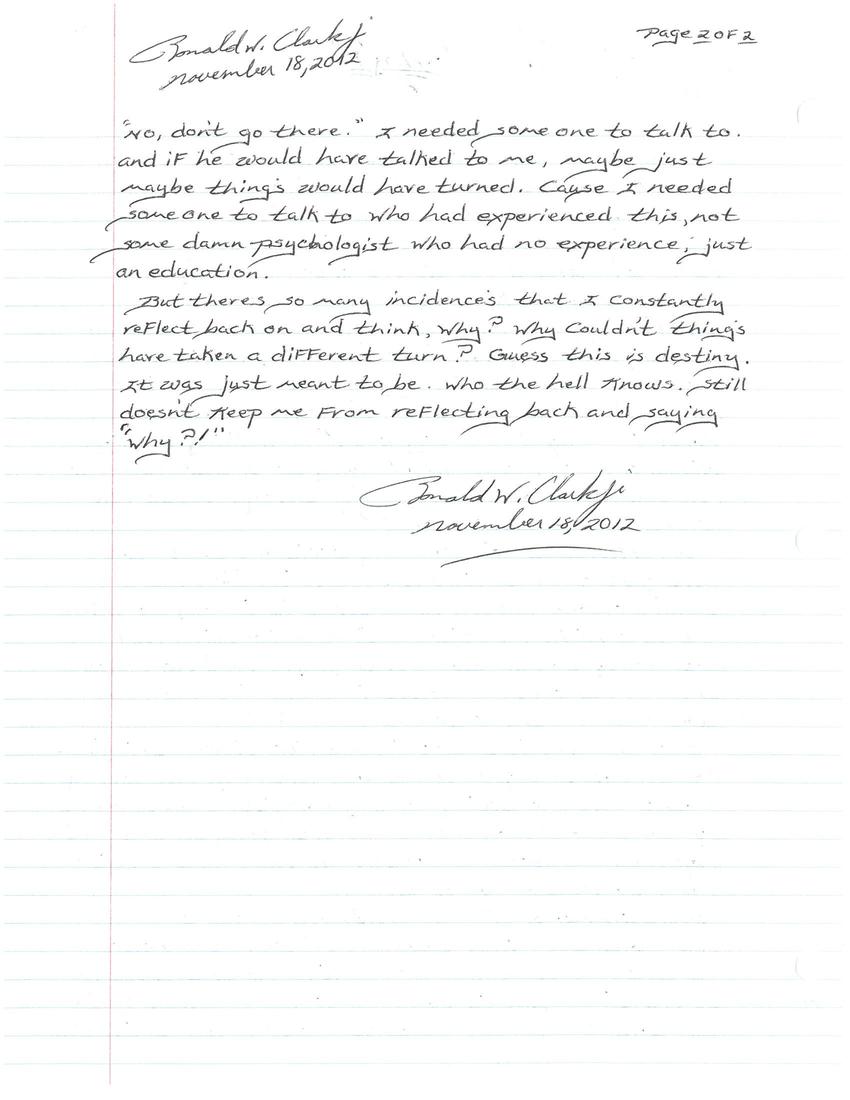 Ronald W. Clark Jr
Page 2 of 2
november 18, 2012
"No, don't go there." I needed some one to talk to.
and if he would have talked to me, maybe just
maybe thing's would have turned. Cause I needed
some one to talk to who had experienced this, not
some damn psychologist who had no experience, just
an education.
But theres so many incidence's that I constantly
reflect back on and think, why? Why couldn't thing's
have taken a different turn? Guess this is destiny.
It was just meant to be. Who the hell knows. Still
doesn't keep me from reflecting back and saying
"why?!"
Ronald W. Clark Jr
november 18, 2012